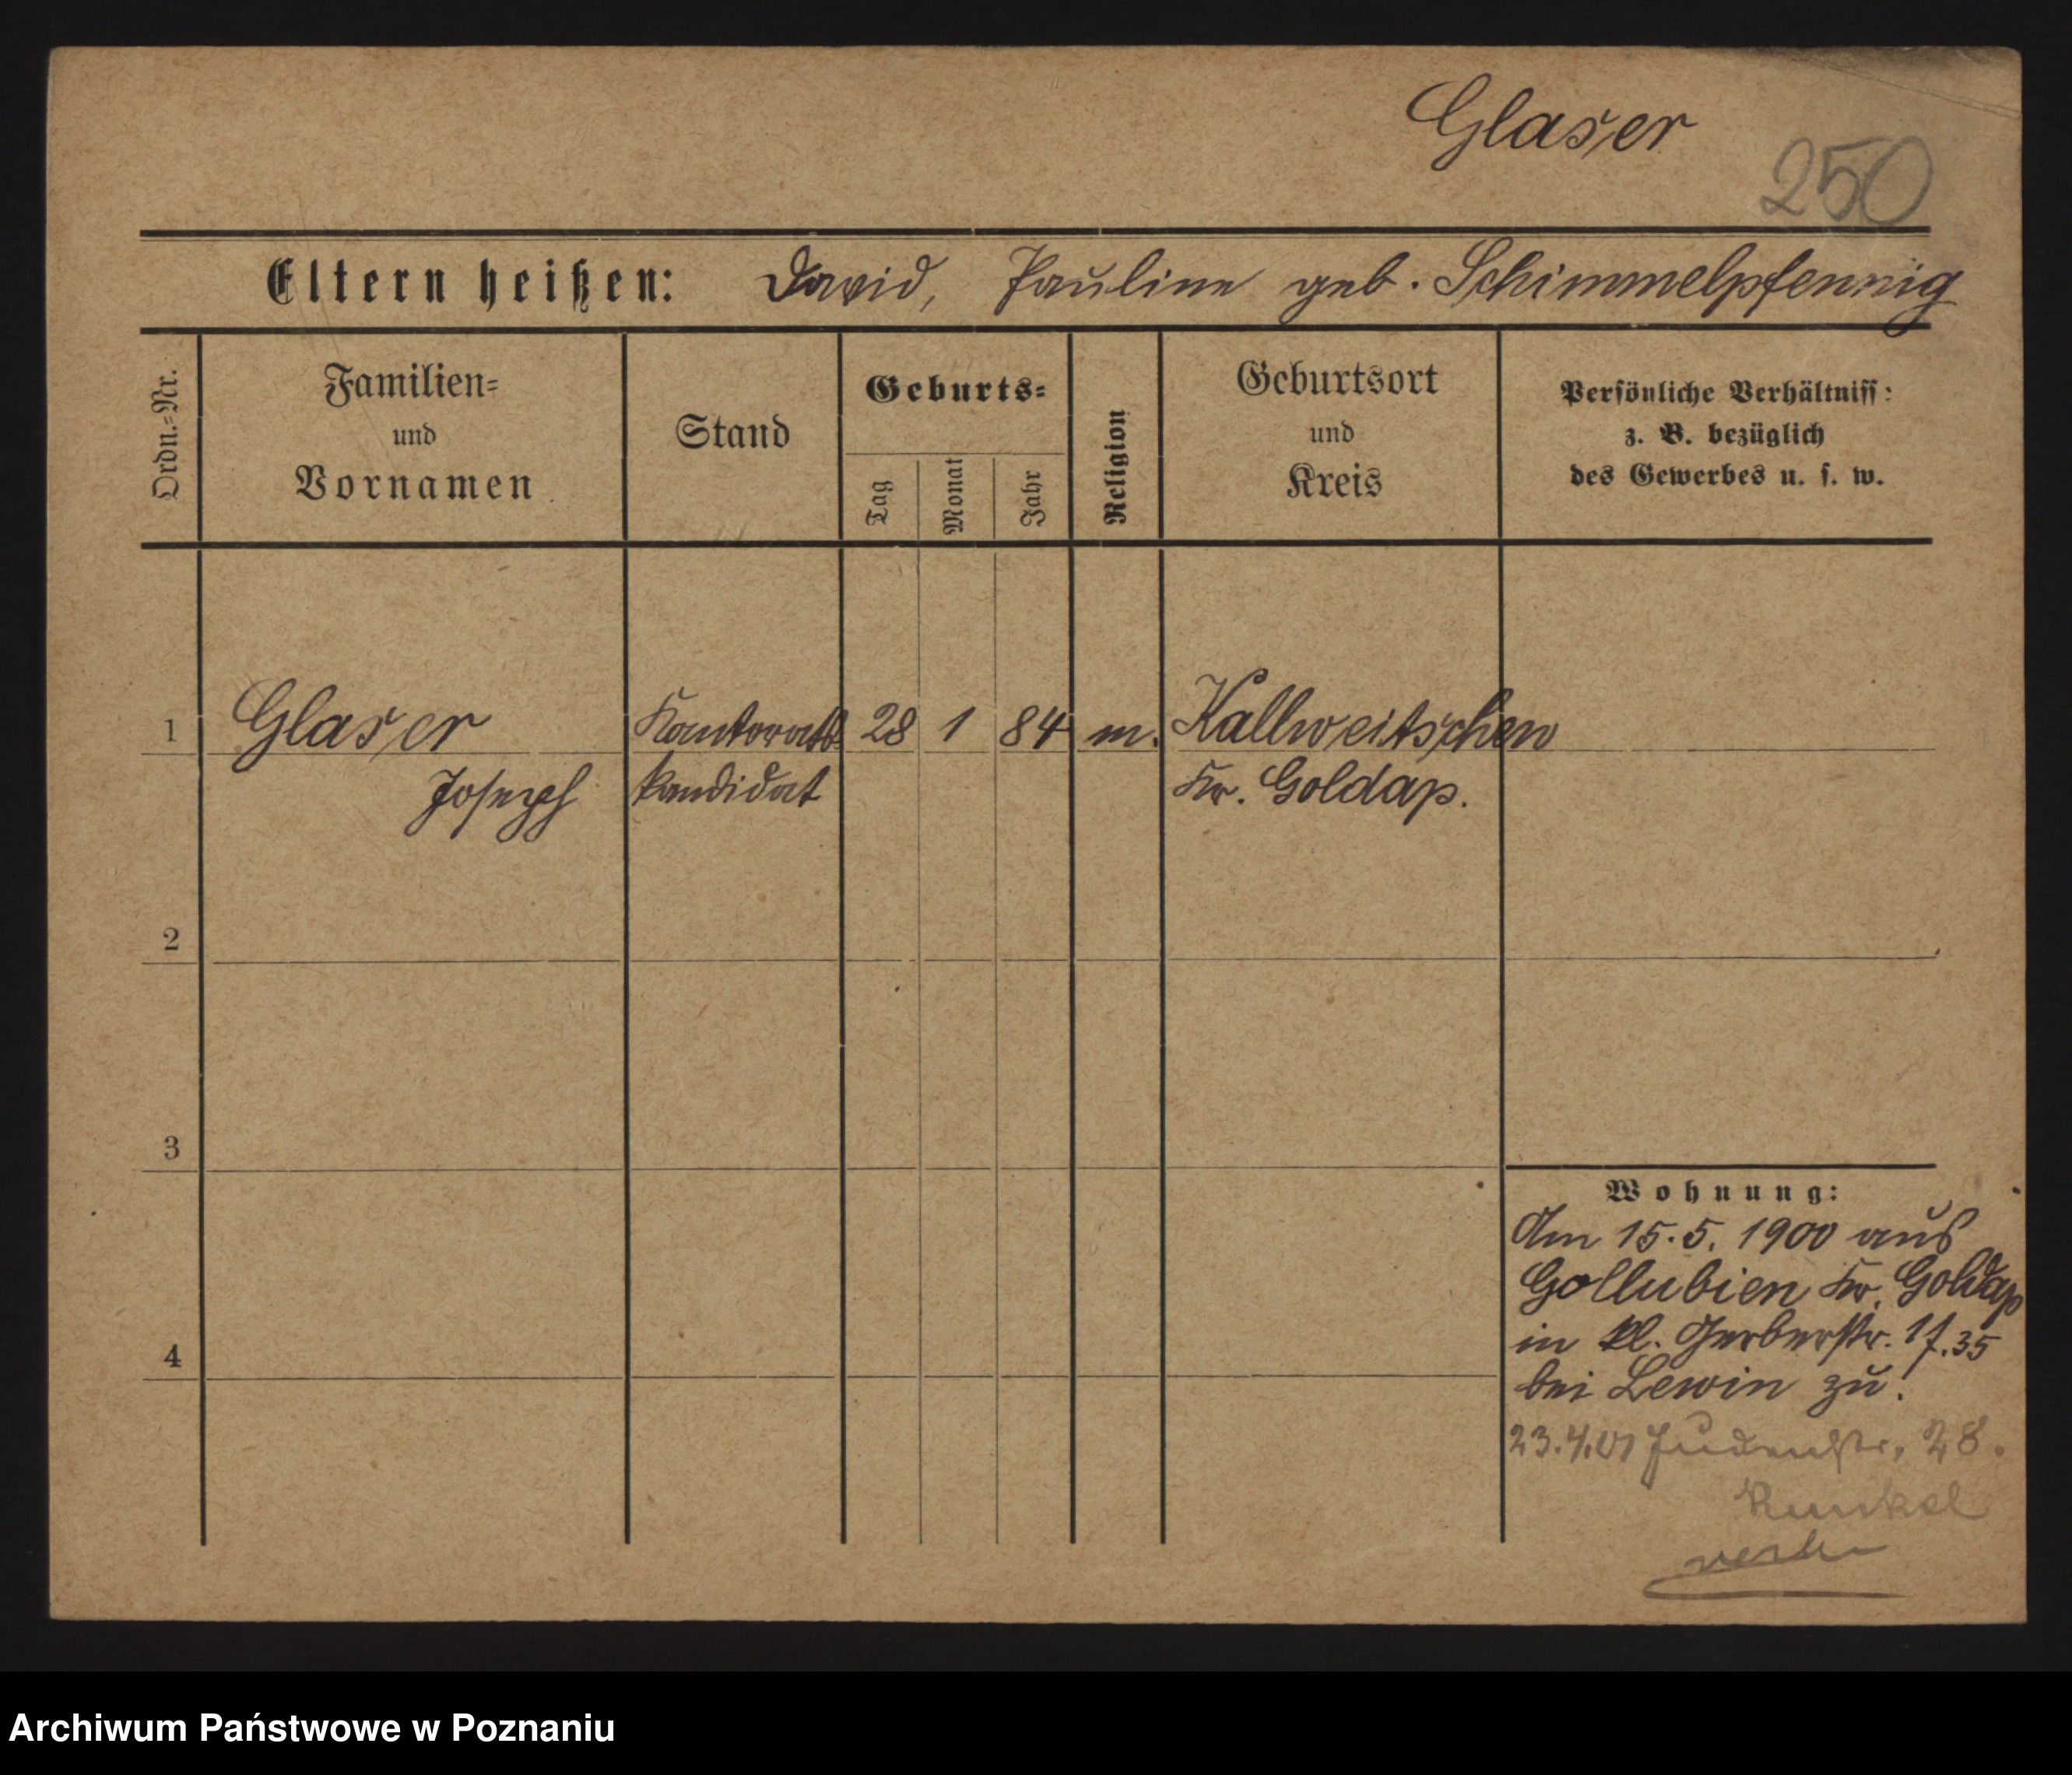 Glaser
250
Eltern heißen: David, Pauline geb. Schimmelpfennig
Ordn.=Nr.
Familien=
und
Vornamen
Stand
Geburts=
Tag
Monat
Jahr
Religion
Geburtsort
und
Kreis
Persönliche Verhältniss:
z. B. bezüglich
des Gewerbes u. s. w.
1 Glaser 28 1 84 m. Kallweitschen
Joseph kandidat Kr. Goldap.
2
3
4
Wohnung:
Am 15.5.1900 aus
Gollubien Kr. Goldap
in kl. Gerberstr. 1f.35
bei Lewin zu!
23.4.01 Judenstr. 28.
Kunkel
Archiwum Państwowe w Poznaniu